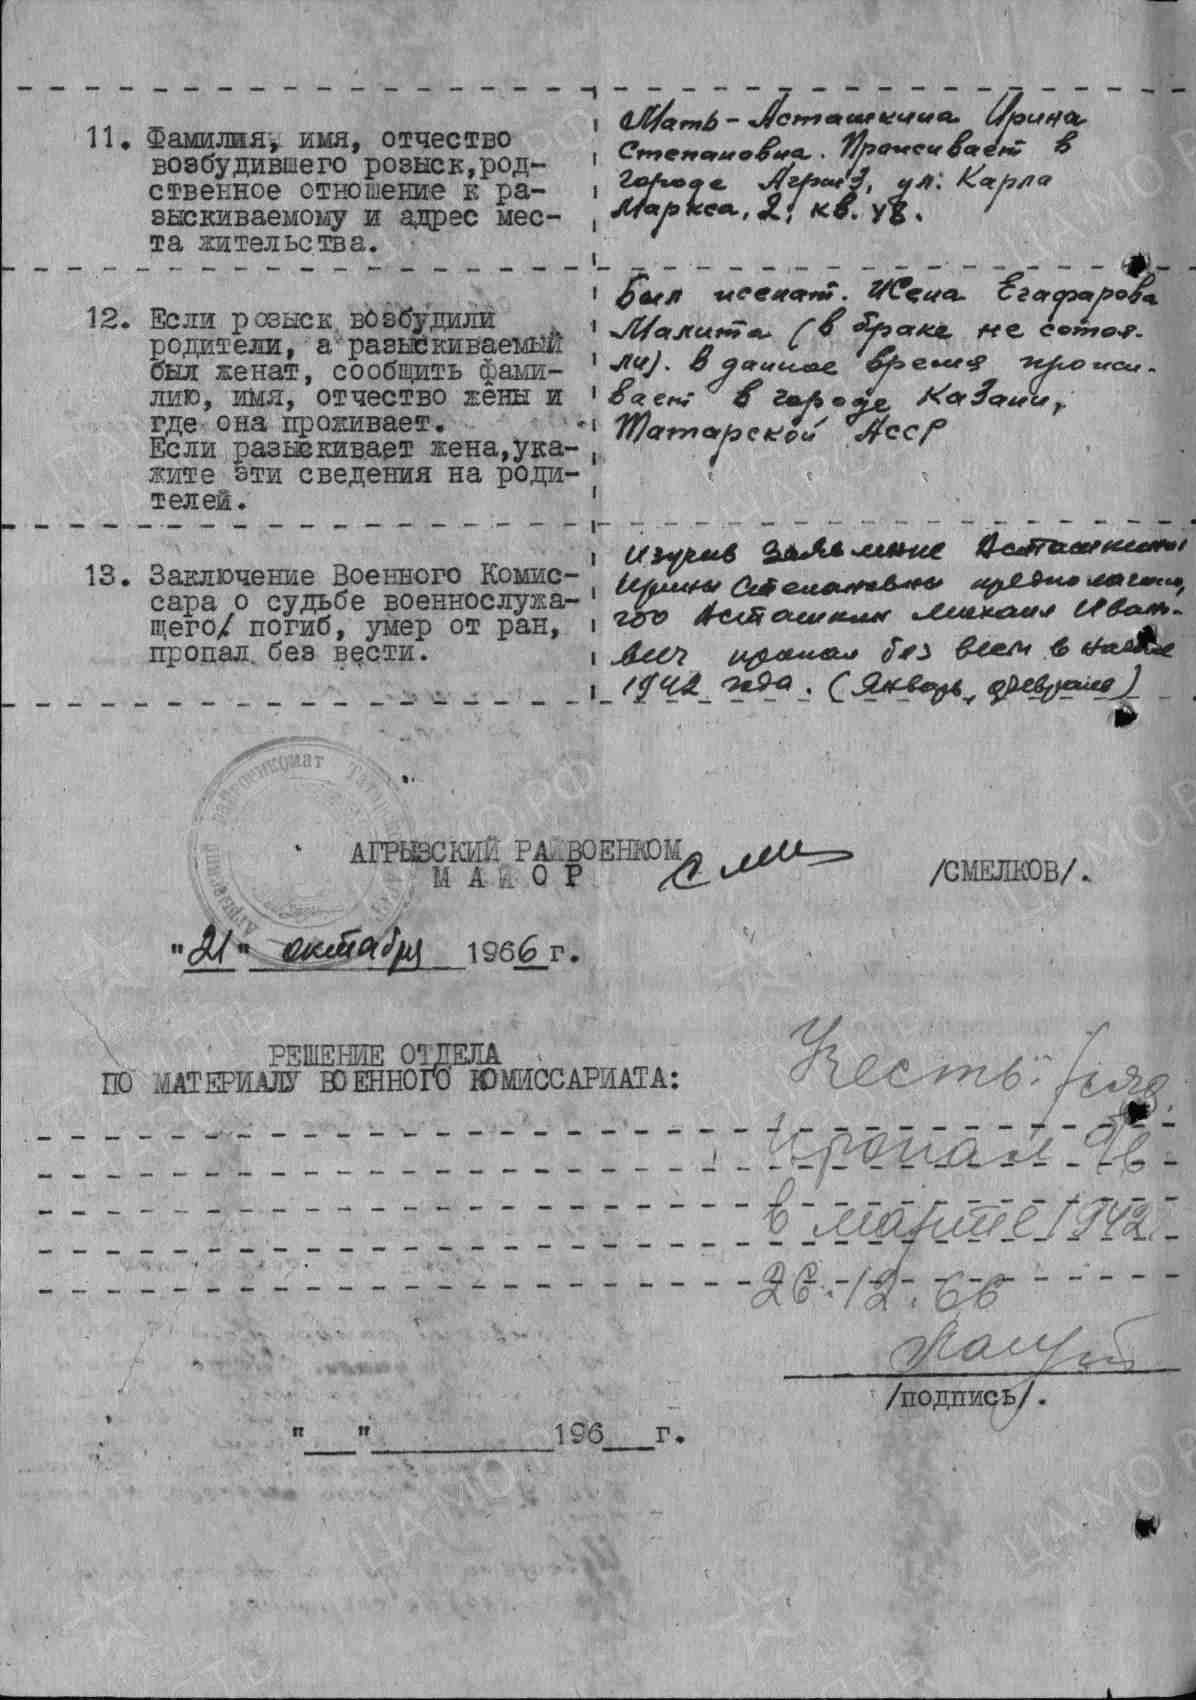 11. Фамилия, имя, отчество
возбудившего розыск,род-
ственное отношение к ра-
зыскиваемому и адрес мес-
та жительства.
Мать - Асташкина Ирина
Степановна. Проживает в
городе Агрыз, ул: Карла
Маркса, 2, кв.
12. Если розыск возбудили
родители, а разыскиваемый
был женат, сообщить фами-
лию, имя, отчество жены и
где она проживает.
Если разыскивает жена,ука-
жите эти сведения на роди-
телей.
Был женат. Жена Егафарова
Малита (в браке не состоя-
ли). В данное время прожи-
вает в городе Казани,
Татарской АССР
13. Заключение Военного Комис-
сара о судьбе военнослужа-
щего/ погиб, умер от ран,
пропал без вести.
Изучив заявление Асташкиной
Ирины Степановны предполагаю,
что Асташкин Михаил Ивано-
вич пропал без вести в начале
1942 года. (Январь, февраль)
райвоенкомат
АГРЫЗСКИЙ РАЙВОЕНКОМ
МАЙОР
/СМЕЛКОВ/.
"21" октября 1966 г.
РЕШЕНИЕ ОТДЕЛА
ПО МАТЕРИАЛУ ВОЕННОГО КОМИССАРИАТА:
Учесть
пропал
в марте 1942
26.12.66
/подпись/.
"___"__________196___г.
ЦАМО.РФ